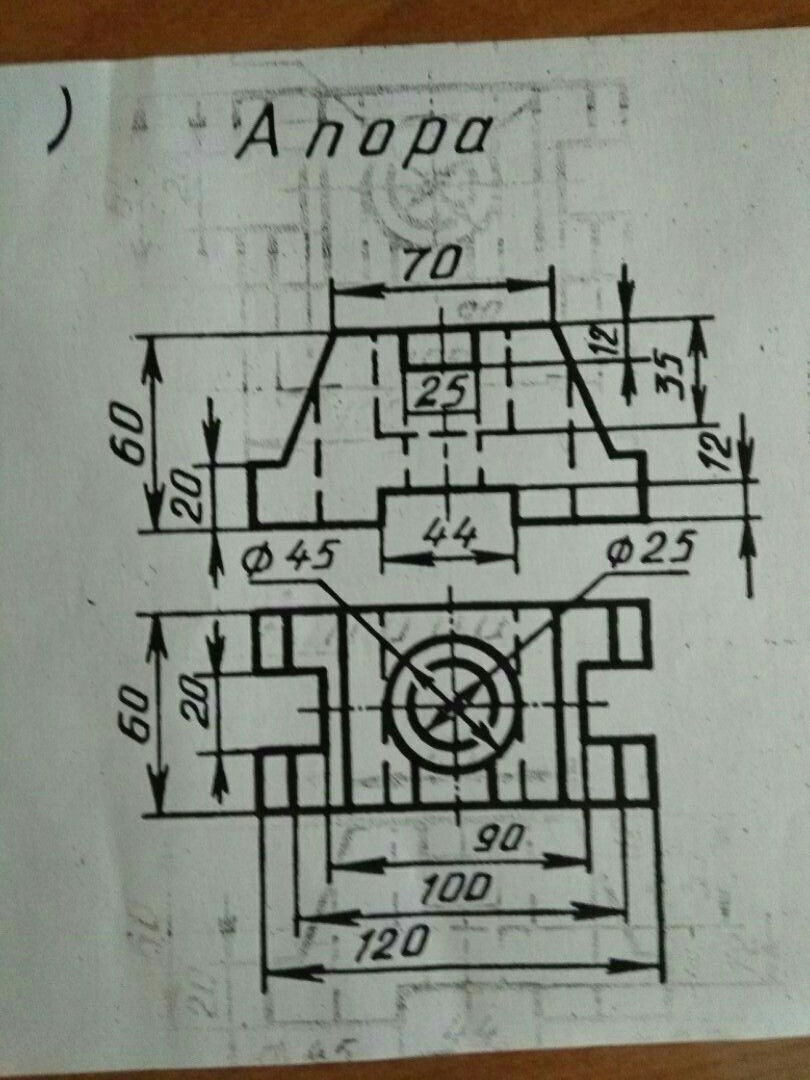 )
Апора
70
12
35
25
60
20
12
44
Ф45
Ф25
60
20
90
100
120